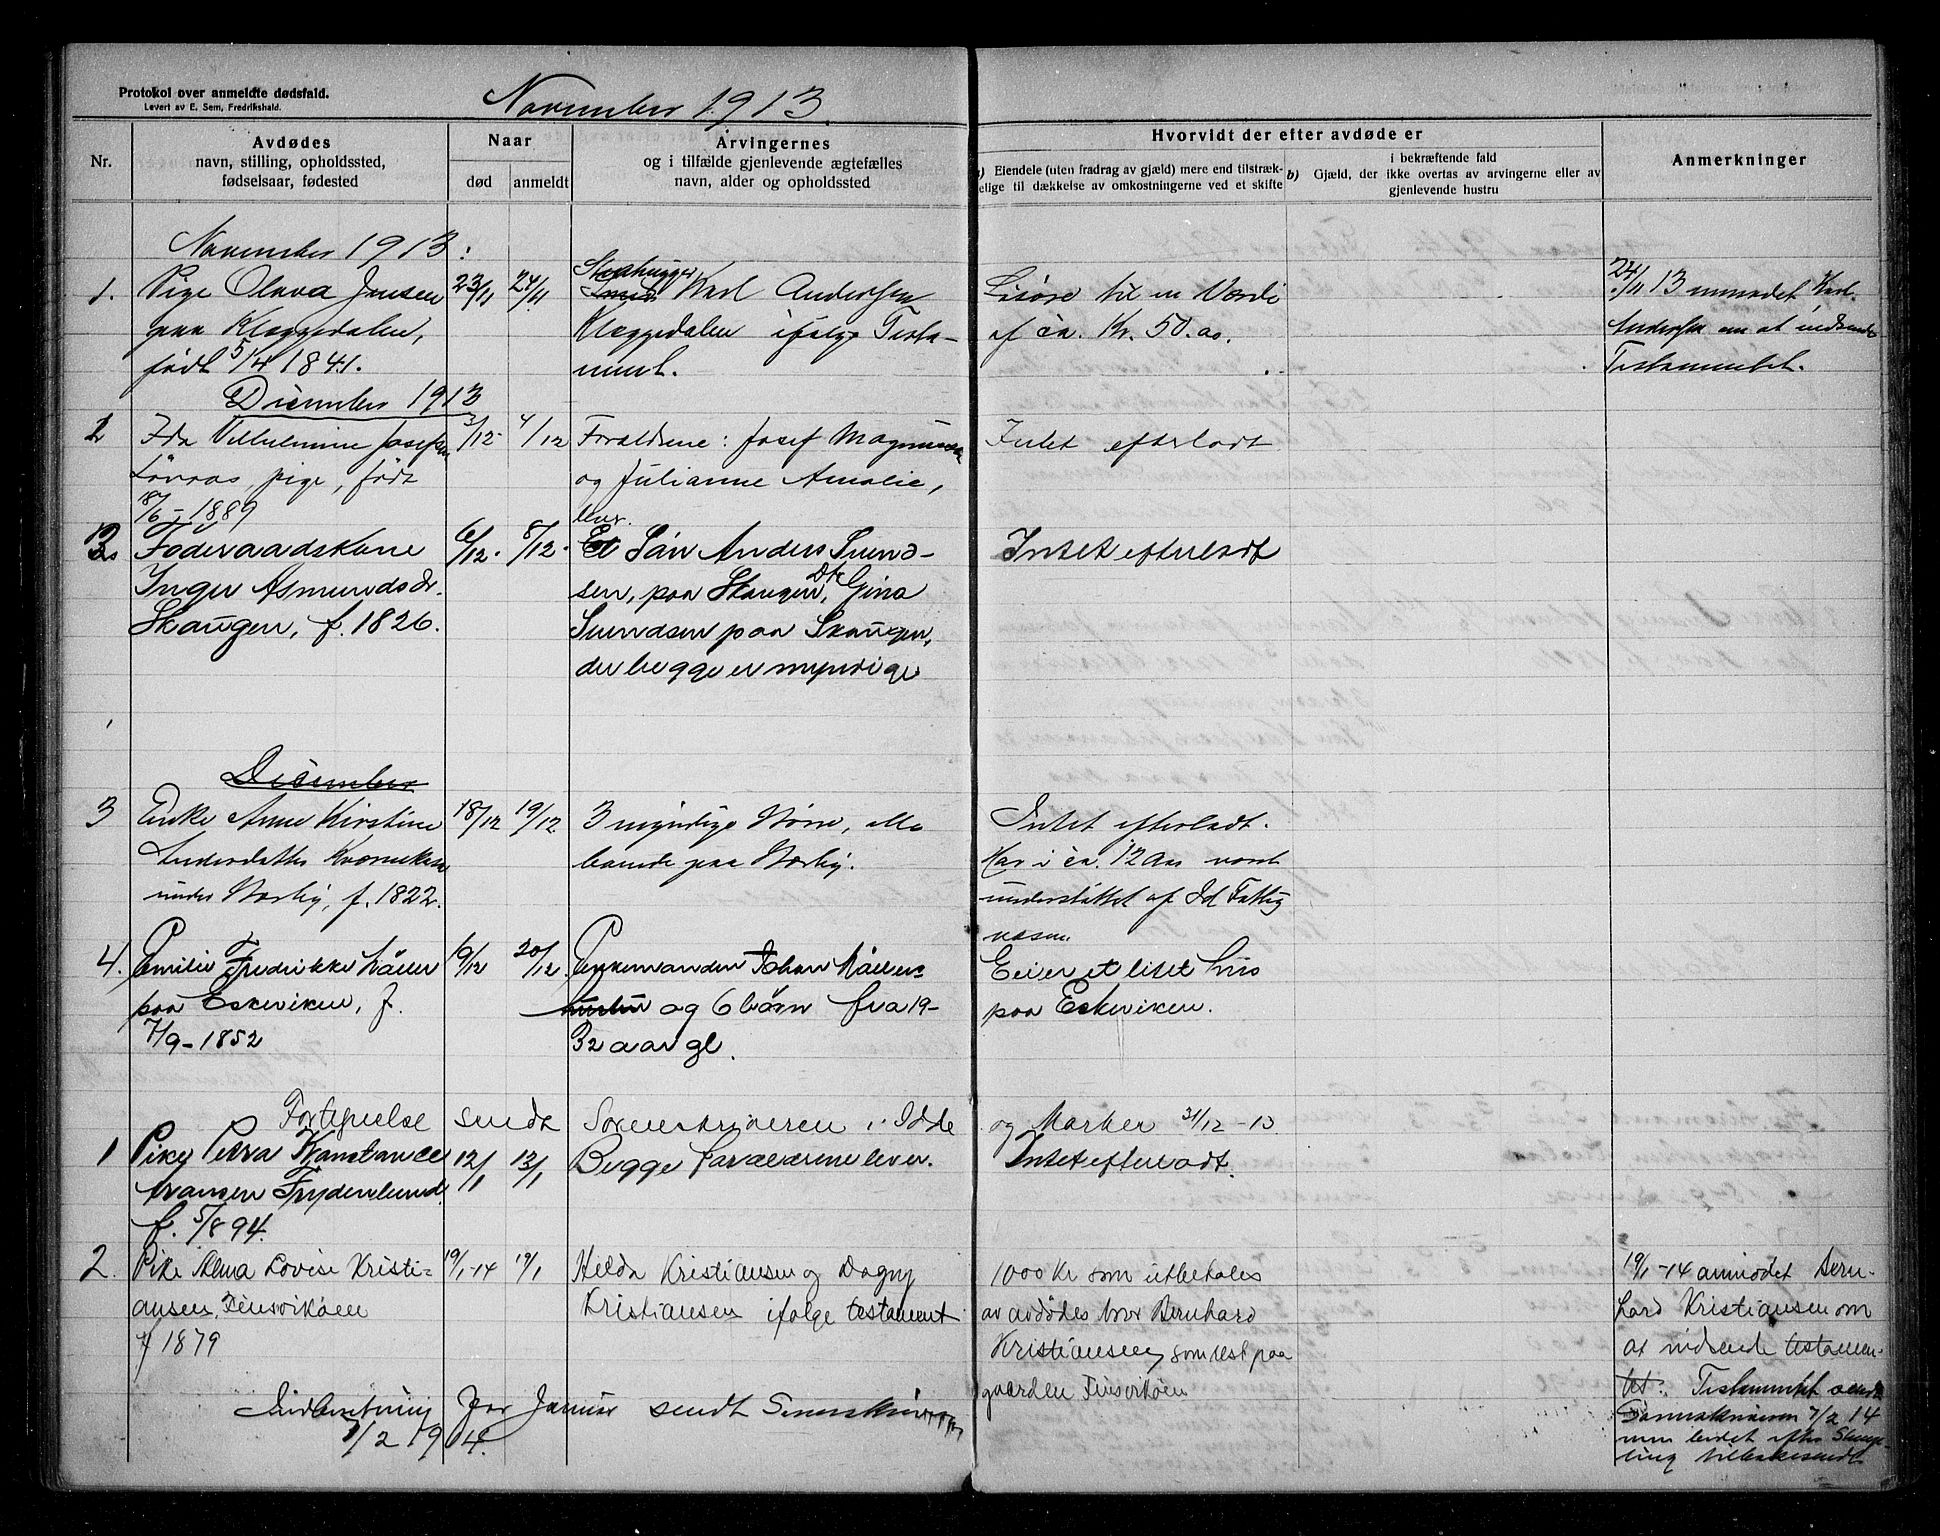 Protokol over anmeldte dødsfald.
Levert av E. Sem, Fredrikshald.
November 1913.
Nr.
Avdødes
navn, stilling, opholdssted,
fødselsaar, fødested
Naar
død
anmeldt
Arvingernes
og i tilfælde gjenlevende ægtefælles
navn, alder og opholdssted
Hvorvidt der efter avdøde er
a) Eiendele (uten fradrag av gjæld) mere end tilstræk-
kelige til dækkelse av omkostningerne ved et skifte
i bekræftende fald
b) Gjæld, der ikke overtas av arvingerne eller av
gjenlevende hustru
Anmerkninger
November 1913:
1. Pige Olava Jensen
paa Kleggedalen,
født 5/4 1841.
23/11 24/11
Stenhugger
Karl Andersen
Kleggedalen ifølge Testa-
ment.
Løsøre til en Værdi
af ca. Kr. 50.00.
24/11 13 anmodet Karl
Andersen om at indsende
Testamentet.
December 1913
1 Ida Vilhelmine Josefsen
Løvaas, pige, født
18/6 - 1889
3/12 - 4/12
Forældrene: Josef Magnussen
og Julianne Amalie,
lever.
Intet efterladt
2. Føderaadskone
Inger Asmundsdr.
Skaugen, f. 1826.
6/12. 8/12.
Søn Anders Svend-
sen, paa Skaugen, Dtr Gina
Svendsen paa Skaugen,
der begge er myndige
Intet efterladt
December
3 Enke Anne Kirstine
Andersdatter
under Norby, f. 1822.
18/12 19/12
3 myndige Børn, alle
boende paa Norby.
Intet efterladt.
Har i ca. 12 Aar været
understøttet af Id Fattig
væsen.
4. Emilie Fredrikke Møller
paa Eskeviken, f.
7/9 - 1852
19/12 20/12
Enkemanden Johan Møller
hustru og 6 børn fra 19-
32 aar gl.
Eier et litet hus
paa Eskeviken.
Fortegnelse sendt Sorenskriveren i Idde og Marker 31/12 - 13
1 Pike Petra Konstance
Hansen Frydenlund,
f. 5/8 94.
12/1 13/1
Begge Forældrene lever.
Intet efterladt.
2. Pike Alma Lovise Kristi-
ansen,
f 1879
19/1-14 19/1
Hilda Kristiansen og Dagny
Kristiansen ifølge testament
1000 Kr som utbetales
av avdødes bror Bernhard
Kristiansen, som rest paa
gaarden
19/1-14 anmodet Bern-
hard Kristiansen om
at indsende testamen-
tet: Testamentet sendt
Sorenskriveren 7/2 14
men bedet efter Stemp-
ling tilbakesendt
Indberetning for Januar sendt Sorenskriveren
7/2 1914.